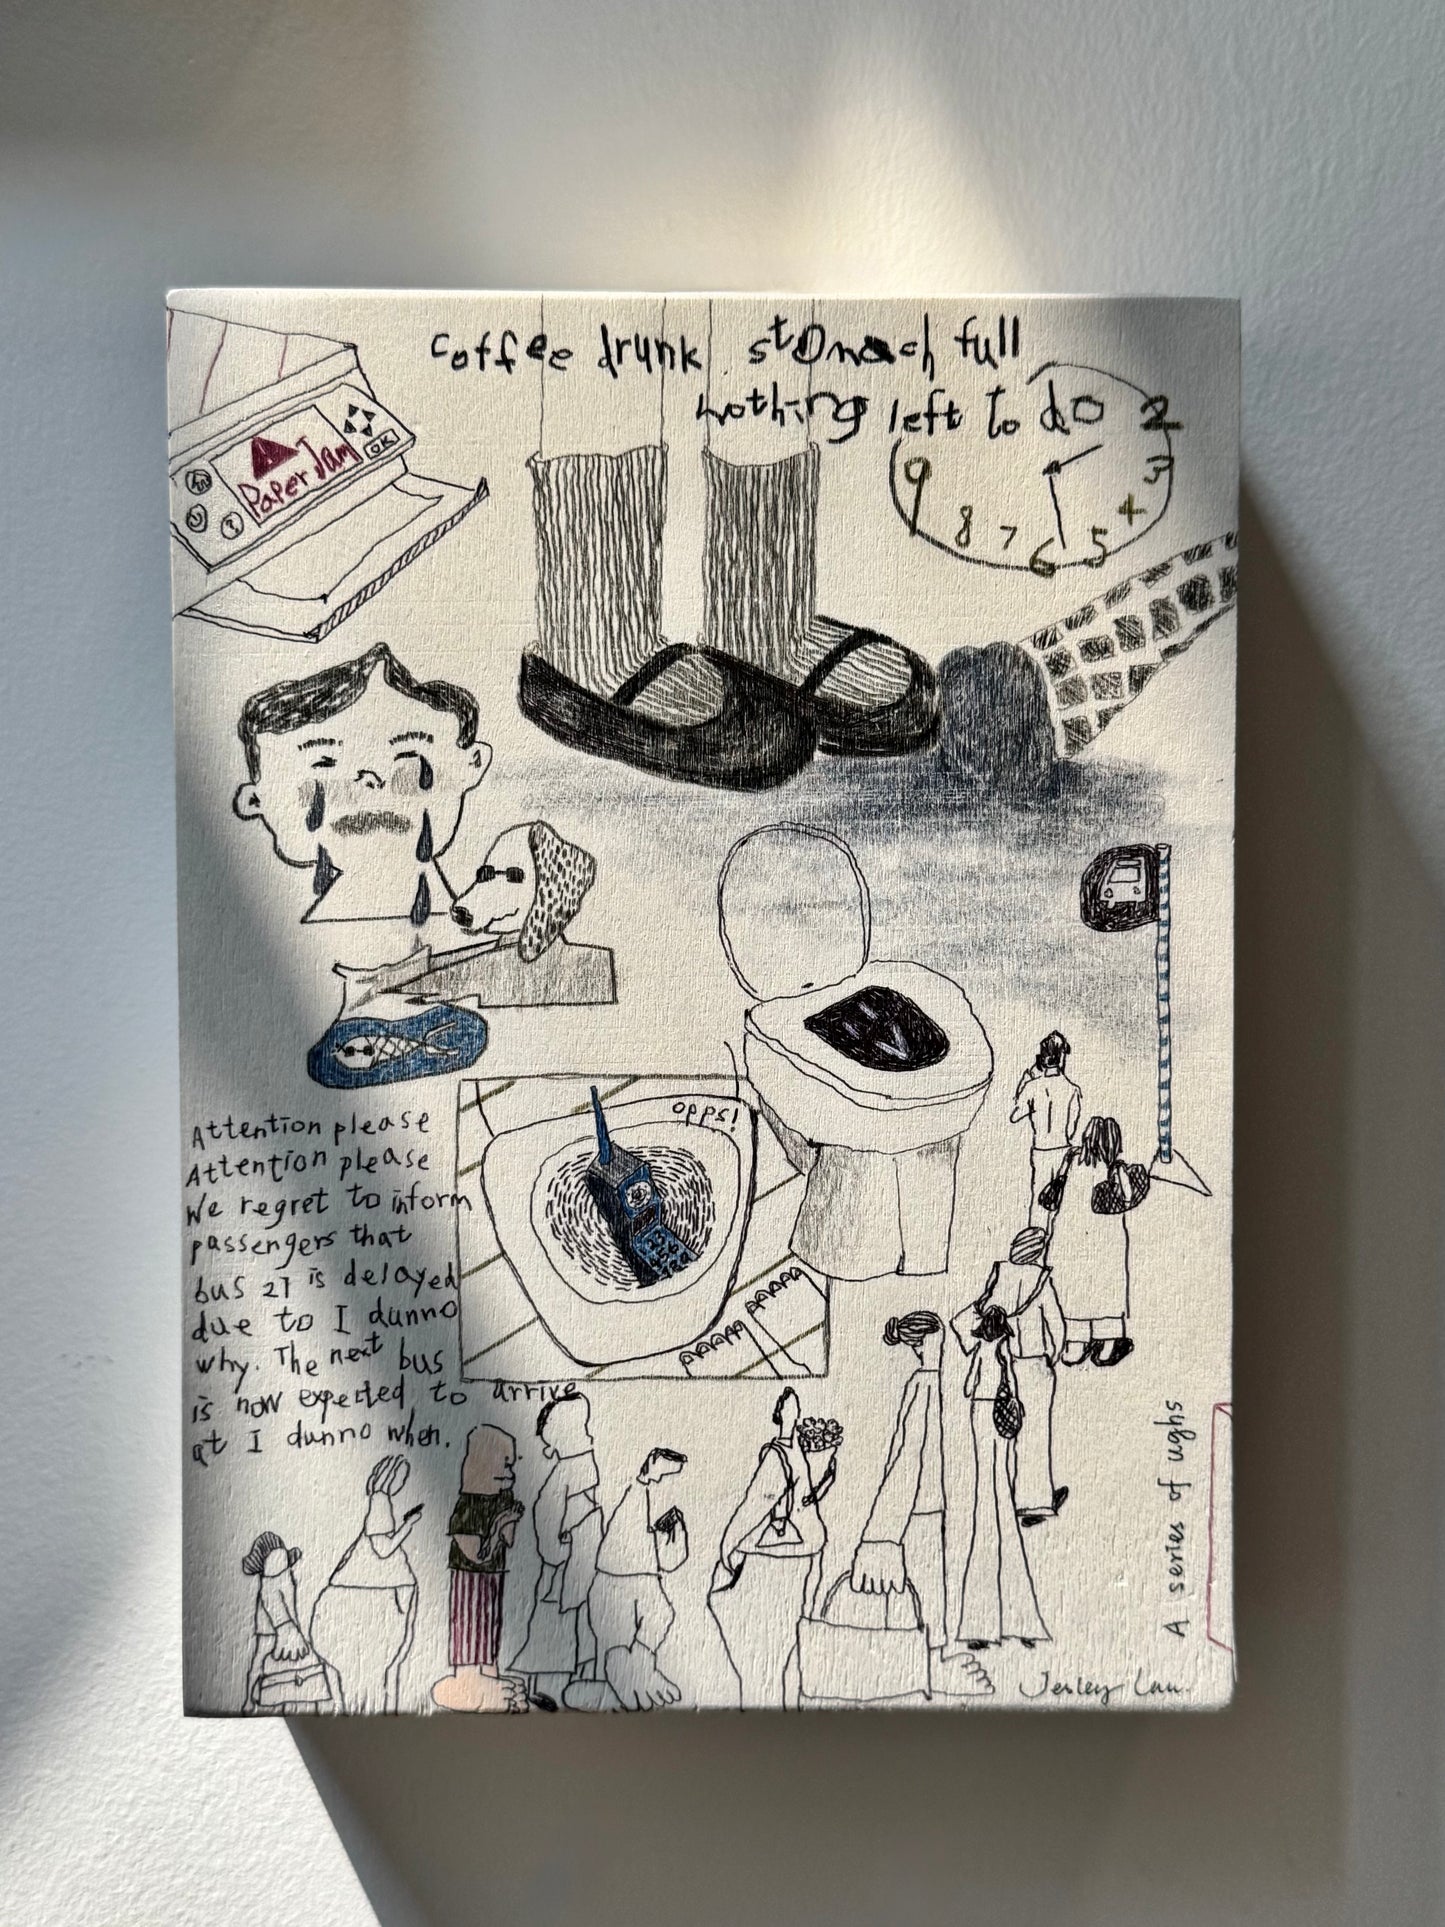 coffee drunk stomach full
nothing left to do
2
3
4
5
6
7
8
9
OK
Paper Jam
opps!
Attention please
Attention please
We regret to inform
passengers that
bus 21 is delayed
due to I dunno
why. The next bus
is now expected to arrive
at I dunno when.
A series of ughs